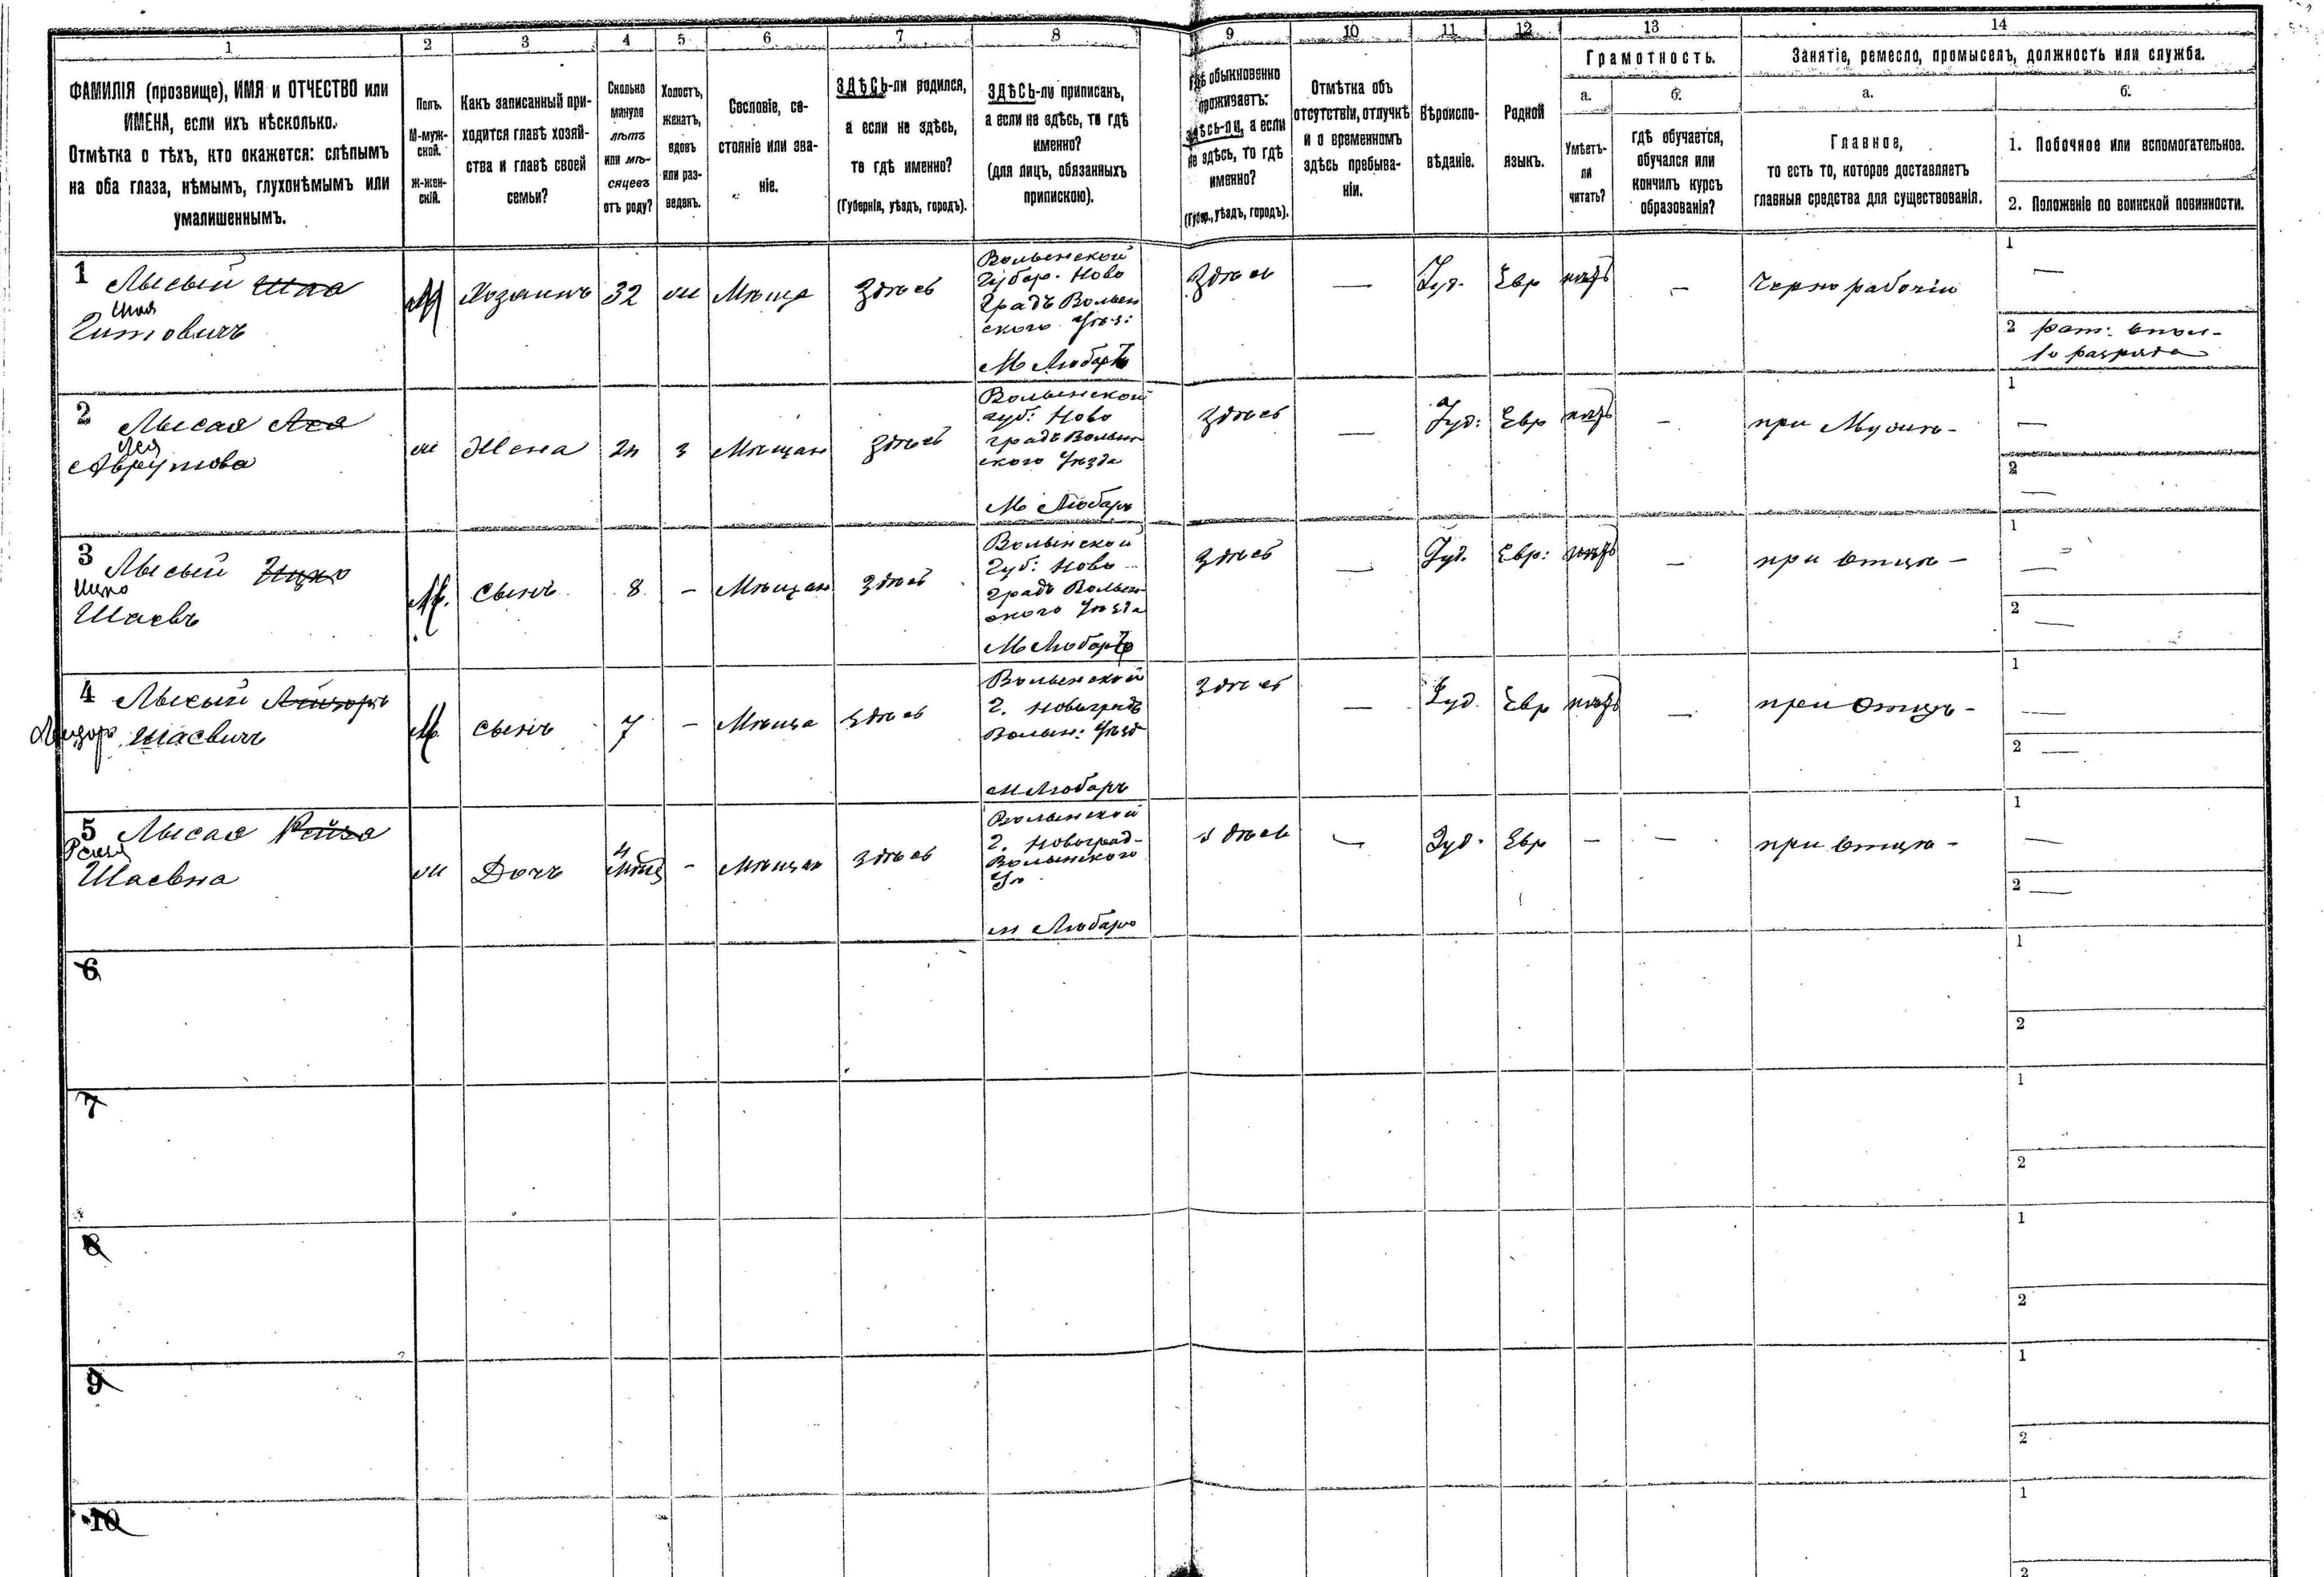 1 2 3 4 5 6 7 8 9 10 11 12 13 14
ФАМИЛІЯ (прозвище), ИМЯ и ОТЧЕСТВО или
ИМЕНА, если ихъ нѣсколько.
Отмѣтка о тѣхъ, кто окажется: слѣпымъ
на оба глаза, нѣмымъ, глухонѣмымъ или
умалишеннымъ.
Полъ.
М-муж-
ской.
Ж-жен-
скій.
Какъ записанный при-
ходится главѣ хозяй-
ства и главѣ своей
семьи?
Сколько
минуло
лѣтъ
или мѣ-
сяцевъ
отъ роду?
Холостъ,
женатъ,
вдовъ
или раз-
веденъ.
Сословіе, со-
стояніе или зва-
ніе.
ЗДѢСЬ-ли родился,
а если не здѣсь,
то гдѣ именно?
(Губернія, уѣздъ, городъ).
ЗДѢСЬ-ли приписанъ,
а если не здѣсь, то гдѣ
именно?
(для лицъ, обязанныхъ
припискою).
Гдѣ обыкновенно
проживаетъ:
здѣсь-ли, а если
не здѣсь, то гдѣ
именно?
(Губер., уѣздъ, городъ).
Отмѣтка объ
отсутствіи, отлучкѣ
и о временномъ
здѣсь пребыва-
ніи.
Вѣроиспо-
вѣданіе.
Родной
языкъ.
Грамотность.
а.
Умѣетъ-
ли
читать?
б.
гдѣ обучается,
обучался или
кончилъ курсъ
образованія?
Занятіе, ремесло, промыселъ, должность или служба.
а.
Главное,
то есть то, которое доставляетъ
главныя средства для существованія.
б.
1. Побочное или вспомогательное.
2. Положеніе по воинской повинности.
1 Лысый Шая
Шая
М Хозяинъ 32 Мѣща Здѣсь
Волынской
Губер. Ново
Градъ Волын
ского Уѣз:
М Любаръ
Здѣсь — Іуд. Евр — Чернорабочій
1 —
2 рат: опол-
1о разряда
2 Лысая Лея
Лея
Жена з Мѣщан Здѣсь
Волынской
губ: Ново
градъ Волын
ского Уѣзда
М Любаръ
Здѣсь — Іуд: Евр — при Мужѣ -
1 —
2 —
3 Лысый Ицко
Ицко
Шаевъ
М. Сынъ 8 - Мѣщан Здѣсь
Волынской
Губ: Ново
градъ Волын
ского Уѣзда
М Любаръ
Здѣсь — Іуд. Евр: — при Отцѣ -
1 —
2 —
4 Лысый
Шаевичъ
М Сынъ 7 - Мѣща Здѣсь
Волынской
г. Новоградъ
Волын: Уѣзд
м Любаръ
Здѣсь — Іуд. Евр — при Отцѣ -
1 —
2 —
5 Лысая Рейза
Рейзя
Шаевна
Дочь 4 - Мѣщан Здѣсь
Волынской
г. Новоград-
Волынского
Уѣ
м Любаръ
Здѣсь — Іуд. Евр - - при Отцѣ -
1 —
2 —
6
1
2
7
1
2
8
1
2
9
1
2
10
1
2